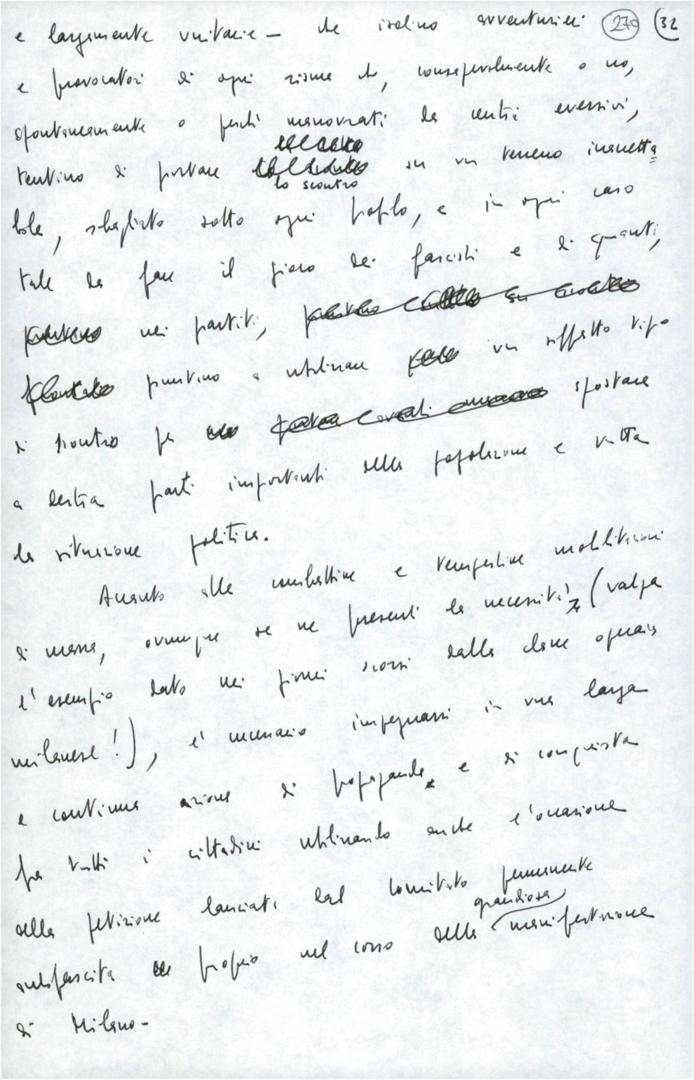 e largamente unitarie – che isolino avventurieri 270 (32
e provocatori di ogni risma che, consapevolmente o no,
spontaneamente o perché manovrati da centri eversivi,
tentino di portare lo scontro su un terreno inaccetta
bile, sbagliato sotto ogni profilo, e in ogni caso
tale da fare il gioco dei fascisti e di quanti,
nei partiti,
puntino a utilizzare un siffatto tipo
di scontro per spostare
a destra parti importanti della popolazione e tutta
la situazione politica.
Accanto alle combattive e tempestive mobilitazioni
di massa, ovunque se ne presenti la necessità, (valga
l'esempio dato nei giorni scorsi dalla classe operaia
milanese!), è necessario impegnarsi in una larga
e continua azione di propaganda e di conquista
fra tutti i cittadini utilizzando anche l'occasione
della petizione lanciata dal Comitato permanente
antifascista proprio nel corso della grandiosa manifestazione
di Milano –